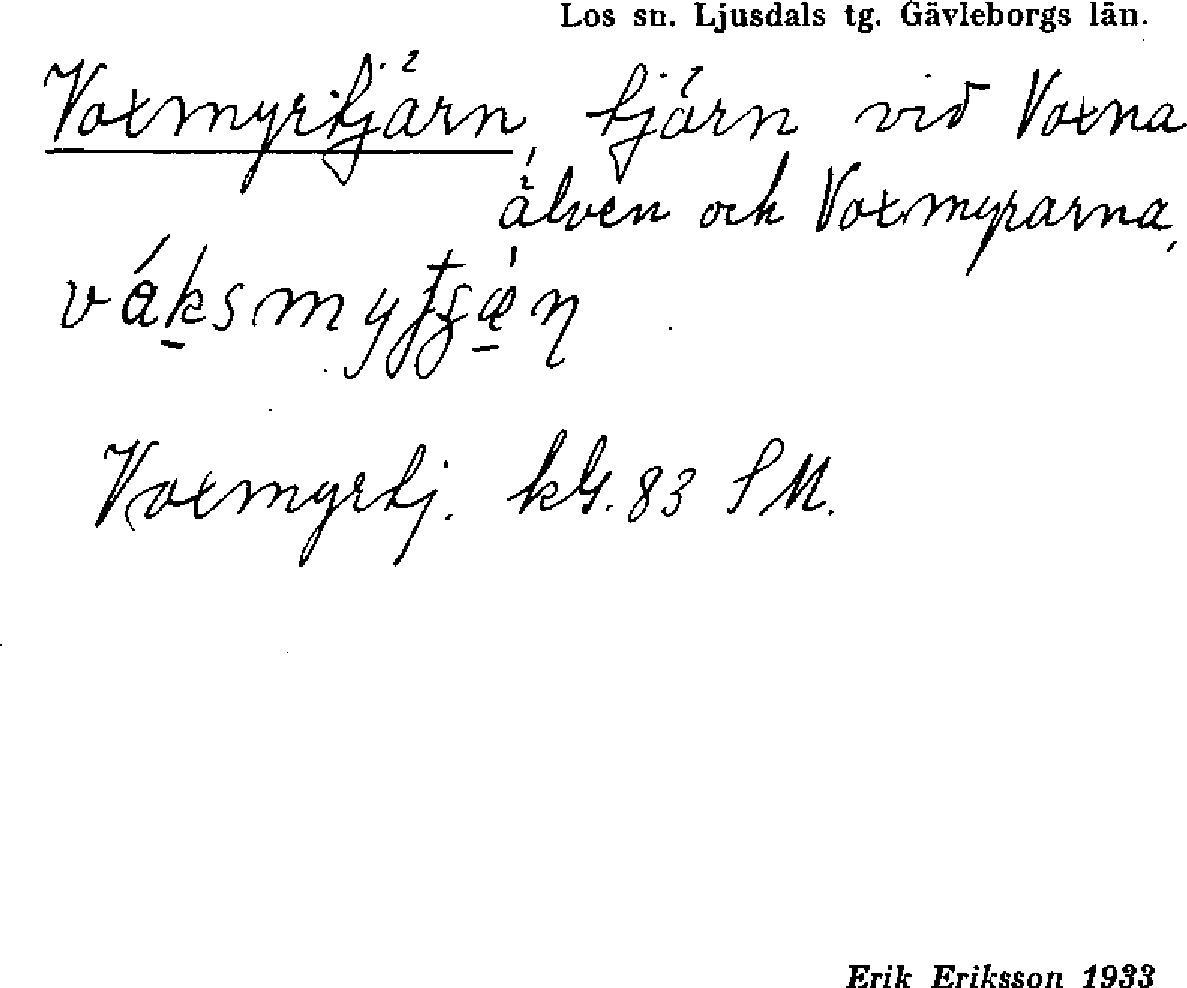 Los sn. Ljusdals tg. Gävleborgs län.
Voxmyrtjärn, tjärn vid Voxna
älven och Voxmyrarna,
Voxmyrtj. kbl. 83 SM.
Erik Eriksson 1933